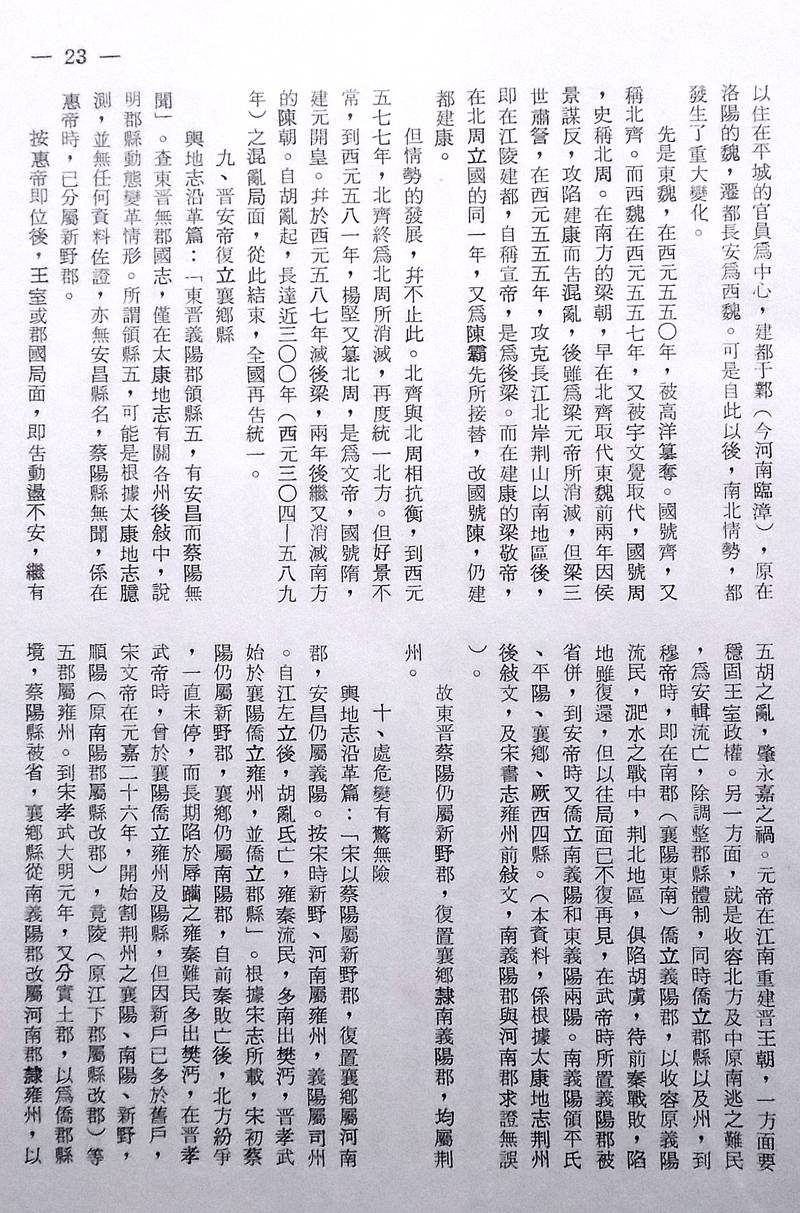 — 23 —
以住在平城的官員爲中心，建都于鄴（今河南臨漳），原在
洛陽的魏，遷都長安爲西魏。可是自此以後，南北情勢，都
發生了重大變化。
先是東魏，在西元五五〇年，被高洋篡奪。國號齊，又
稱北齊。而西魏在西元五五七年，又被宇文覺取代，國號周
，史稱北周。在南方的梁朝，早在北齊取代東魏前兩年因侯
景謀反，攻陷建康而告混亂，後雖爲梁元帝所消滅，但梁三
世肅詧，在西元五五五年，攻克長江北岸荆山以南地區後，
即在江陵建都，自稱宣帝，是爲後梁。而在建康的梁敬帝，
在北周立國的同一年，又爲陳霸先所接替，改國號陳，仍建
都建康。
但情勢的發展，幷不止此。北齊與北周相抗衡，到西元
五七七年，北齊終爲北周所消滅，再度統一北方。但好景不
常，到西元五八一年，楊堅又篡北周，是爲文帝，國號隋，
建元開皇。幷於西元五八七年滅後梁，兩年後繼又消滅南方
的陳朝。自胡亂起，長達近三〇〇年（西元三〇四—五八九
年）之混亂局面，從此結束，全國再告統一。
九、晋安帝復立襄鄉縣
輿地志沿革篇：「東晋義陽郡領縣五，有安昌而蔡陽無
聞」。查東晋無郡國志，僅在太康地志有關各州後敍中，說
明郡縣動態變革情形。所謂領縣五，可能是根據太康地志臆
測，並無任何資料佐證，亦無安昌縣名，蔡陽縣無聞，係在
惠帝時，已分屬新野郡。
按惠帝即位後，王室或郡國局面，即告動盪不安，繼有
五胡之亂，肇永嘉之禍。元帝在江南重建晋王朝，一方面要
穩固王室政權。另一方面，就是收容北方及中原南逃之難民
，爲安輯流亡，除調整郡縣體制，同時僑立郡縣以及州，到
穆帝時，即在南郡（襄陽東南）僑立義陽郡，以收容原義陽
流民，淝水之戰中，荆北地區，俱陷胡虜，待前秦戰敗，陷
地雖復還，但以往局面已不復再見，在武帝時所置義陽郡被
省併，到安帝時又僑立南義陽和東義陽兩陽。南義陽領平氏
、平陽、襄鄉、厥西四縣。（本資料，係根據太康地志荆州
後敍文，及宋書志雍州前敍文，南義陽郡與河南郡求證無誤
）。
故東晋蔡陽仍屬新野郡，復置襄鄉隸南義陽郡，均屬荆
州。
十、處危變有驚無險
輿地志沿革篇：「宋以蔡陽屬新野郡，復置襄鄉屬河南
郡，安昌仍屬義陽。按宋時新野、河南屬雍州，義陽屬司州
。自江左立後，胡亂氐亡，雍秦流民，多南出樊沔，晋孝武
始於襄陽僑立雍州，並僑立郡縣」。根據宋志所載，宋初蔡
陽仍屬新野郡，襄鄉仍屬南陽郡，自前秦敗亡後，北方紛爭
，一直未停，而長期陷於辱躪之雍秦難民多出樊沔，在晋孝
武帝時，曾於襄陽僑立雍州及陽縣，但因新戶已多於舊戶，
宋文帝在元嘉二十六年，開始割荆州之襄陽、南陽、新野，
順陽（原南陽郡屬縣改郡），竟陵（原江下郡屬縣改郡）等
五郡屬雍州。到宋孝武大明元年，又分實土郡，以爲僑郡縣
境，蔡陽縣被省，襄鄉縣從南義陽郡改屬河南郡隸雍州，以